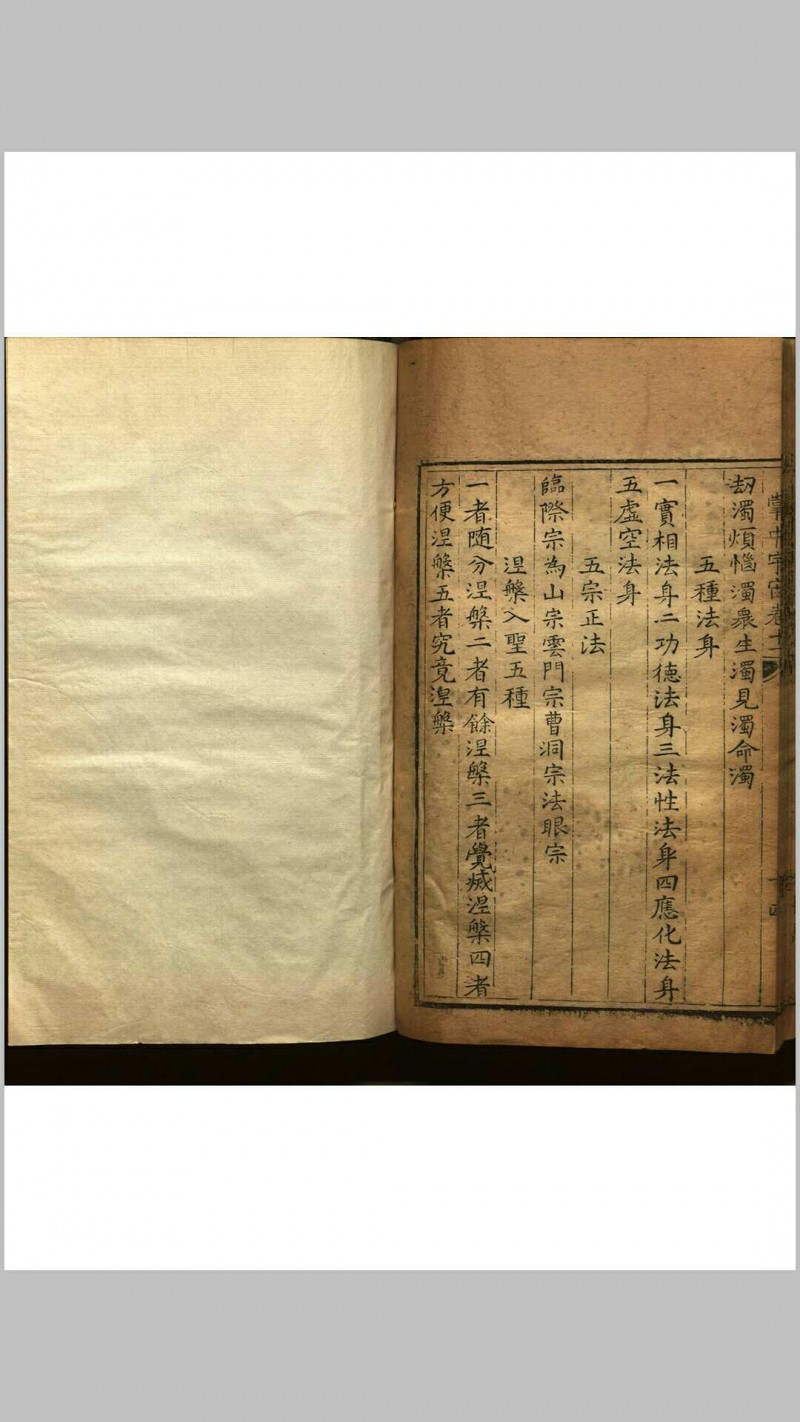 掌中宇宙卷十
劫濁煩惱濁衆生濁見濁命濁
五種法身
一實相法身二功德法身三法性法身四應化法身
五虛空法身
五宗正法
臨際宗為山宗雲門宗曹洞宗法眼宗
涅槃入聖五種
一者随分涅槃二者有餘涅槃三者覺滅涅槃四者
方便涅槃五者究竟涅槃